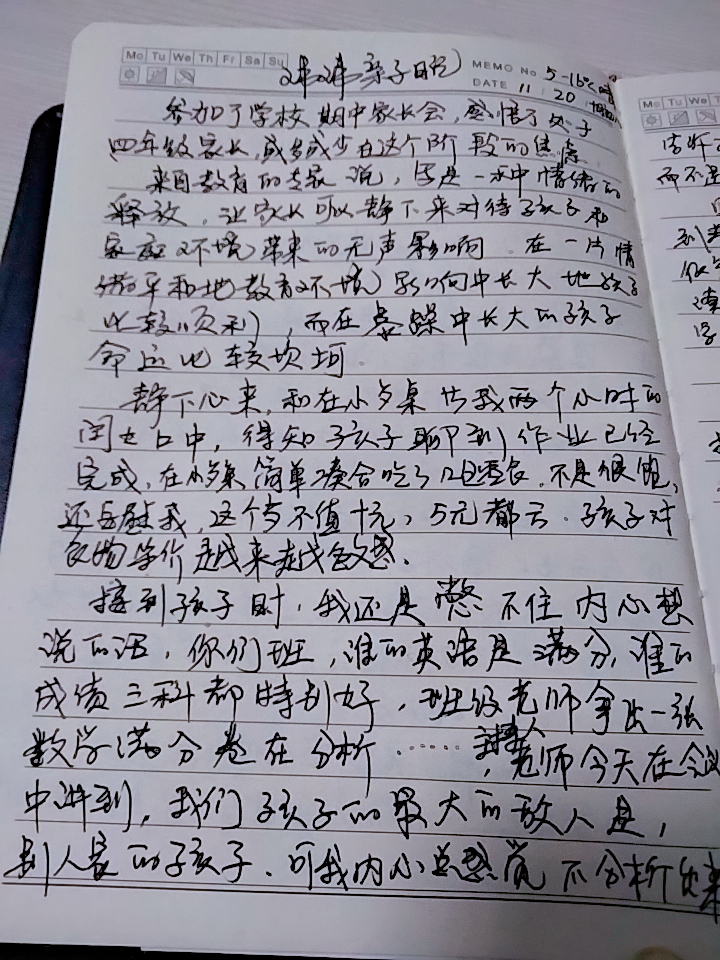 Mo Tu We Th Fr Sa Su
亲子日记
MEMO No. 5-16℃ 晴
DATE 11 / 20
参加了学校期中家长会,感悟了处于
四年级家长,或多或少在这个阶段的焦虑
来自教育的专家说,这是一种情绪的
释放,让家长可以静下来对待孩子和
家庭环境带来的无声影响.在一片情
绪平和地教育环境影响中长大地孩子
比较顺利,而在暴躁中长大的孩子
命运比较坎坷.
静下心来,和在小桌 两个小时的
口中,得知孩子聊到作业已经
完成,在小桌简单凑合吃了几口零食.不是很饱,
还安慰我,这个与不值十元,5元都亏.孩子对
食物学价越来越敏感.
接到孩子时,我还是憋不住内心想
说的话,你们班,谁的英语是满分,谁的
成绩三科都特别好,班级老师拿出一张
数学满分卷在分析……,老师今天在会议
中讲到,我们孩子的最大的敌人是,
别人家的孩子.可我内心总感觉不分析出来
Mo Tu We Th